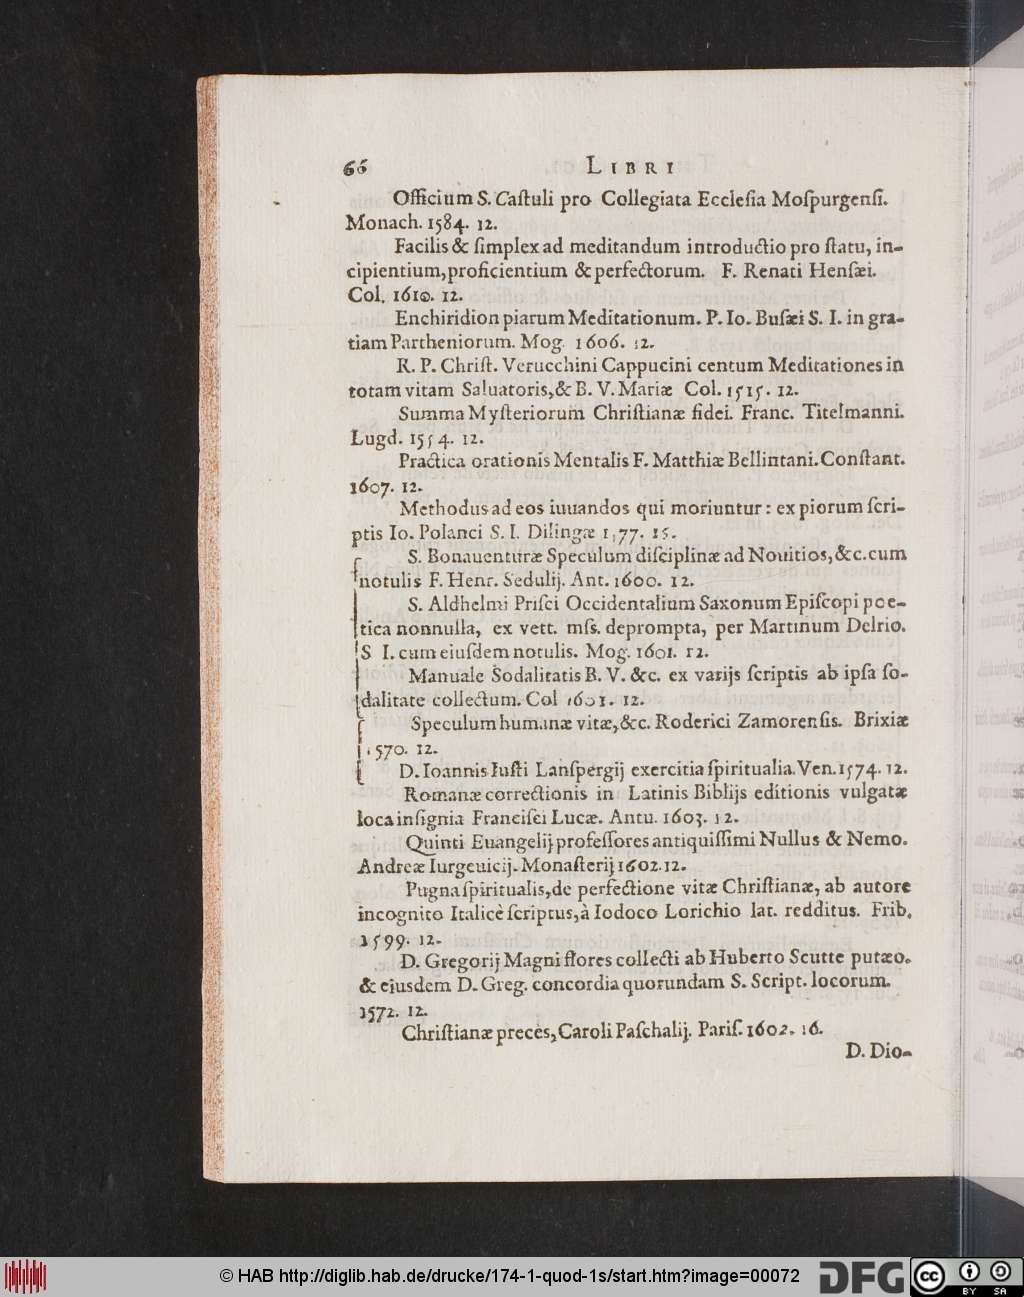 66 LIBRI
Officium S. Caſtuli pro Collegiata Eccleſia Moſpurgenſi.
Monach. 1584. 12.
Facilis & ſimplex ad meditandum introductio pro ſtatu, in-
cipientium, proficientium & perfectorum. F. Renati Henſæi.
Col. 1610. 12.
Enchiridion piarum Meditationum. P. Io. Buſæi S. I. in gra-
tiam Partheniorum. Mog. 1606. 12.
R. P. Chriſt. Verucchini Cappucini centum Meditationes in
totam vitam Saluatoris, & B. V. Mariæ Col. 1515. 12.
Summa Myſteriorum Chriſtianæ fidei. Franc. Titelmanni.
Lugd. 1554. 12.
Practica orationis Mentalis F. Matthiæ Bellintani. Conſtant.
1607. 12.
Methodus ad eos iuuandos qui moriuntur : ex piorum ſcri-
ptis Io. Polanci S. I. Dilingæ 1577. 15.
S. Bonauenturæ Speculum diſciplinæ ad Nouitios, &c. cum
notulis F. Henr. Sedulij. Ant. 1600. 12.
S. Aldhelmi Priſci Occidentalium Saxonum Epiſcopi poe-
tica nonnulla, ex vett. mſs. deprompta, per Martinum Delrio.
S I. cum eiuſdem notulis. Mog. 1601. 12.
Manuale Sodalitatis B. V. &c. ex varijs ſcriptis ab ipſa ſo-
dalitate collectum. Col 1601. 12.
Speculum humanæ vitæ, &c. Roderici Zamorenſis. Brixiæ
1570. 12.
D. Ioannis Iuſti Lanſpergij exercitia ſpiritualia. Ven. 1574. 12.
Romanæ correctionis in Latinis Biblijs editionis vulgatæ
loca inſignia Franciſci Lucæ. Antu. 1603. 12.
Quinti Euangelij profeſſores antiquiſſimi Nullus & Nemo.
Andreæ Iurgeuicij. Monaſterij 1602. 12.
Pugna ſpiritualis, de perfectione vitæ Chriſtianæ, ab autore
incognito Italicè ſcriptus, à Iodoco Lorichio lat. redditus. Frib.
1599. 12.
D. Gregorij Magni flores collecti ab Huberto Scutte putæo.
& eiusdem D. Greg. concordia quorundam S. Script. locorum.
1572. 12.
Chriſtianæ preces, Caroli Paſchalij. Pariſ. 1602. 16.
D. Dio-
© HAB http://diglib.hab.de/drucke/174-1-quod-1s/start.htm?image=00072
DFG
cc BY SA